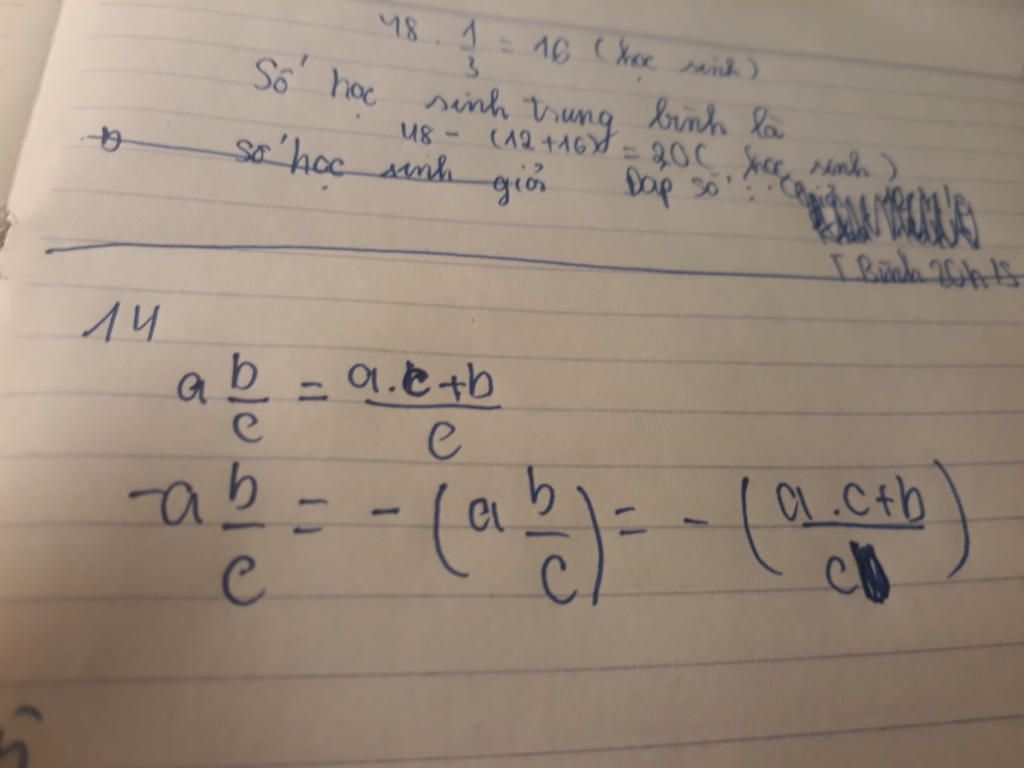 48 . 1/3 = 16 (học sinh)
Số học sinh trung bình là
48 - (12+16) = 20 ( học sinh)
số học sinh giỏi Đáp số :
T Bình 20h
14
a b/c = a.c+b/c
-a b/c = - (a b/c) = - (a.c+b/c)